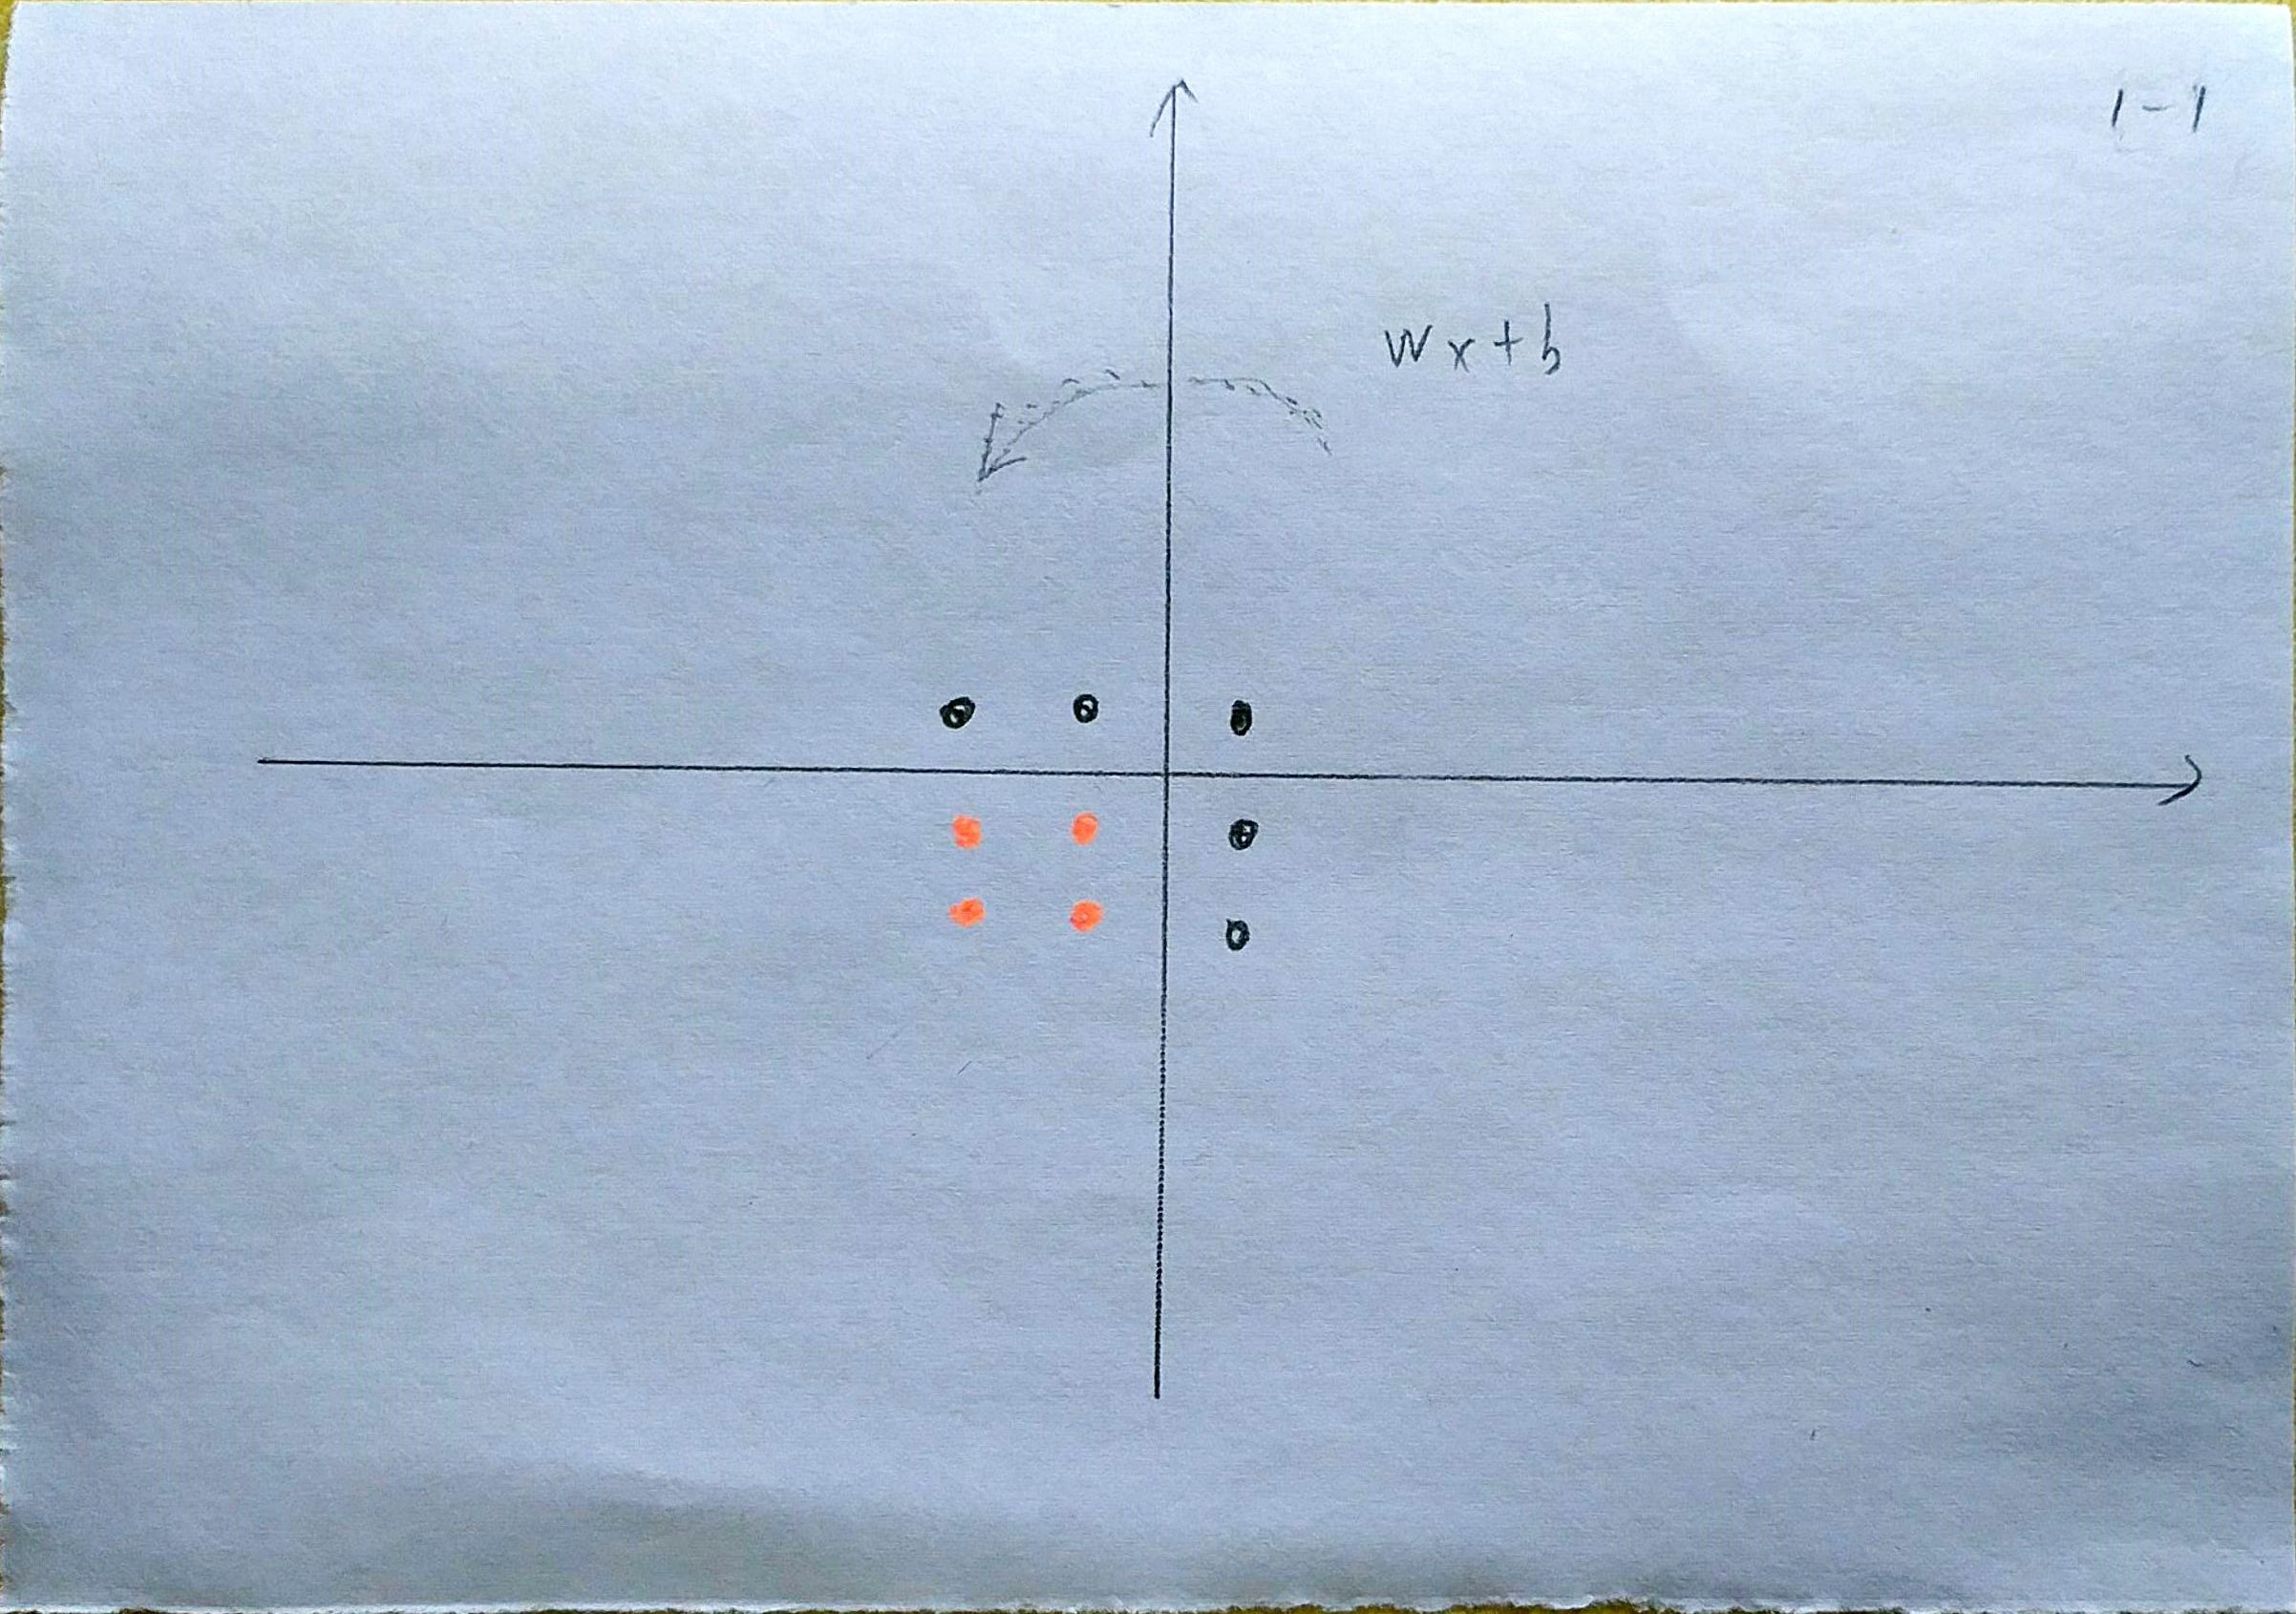 1-1
Wx+b